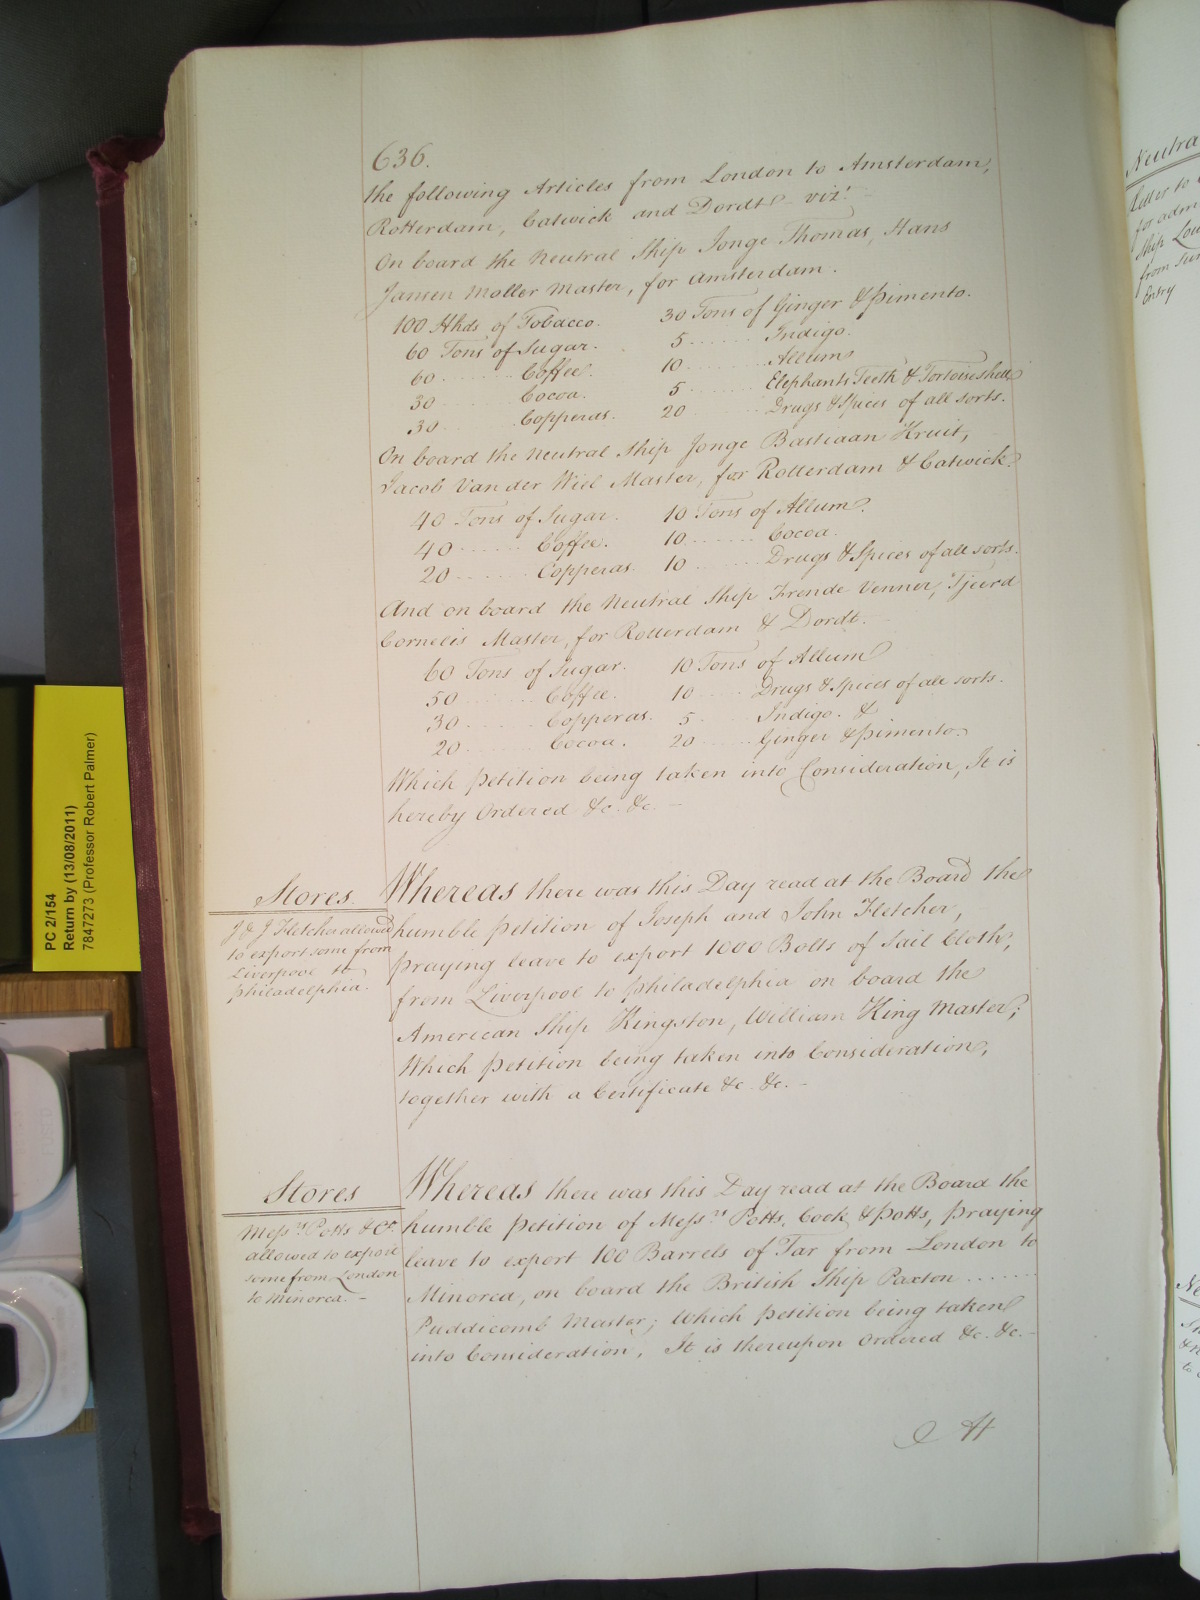 636.
the following Articles from London to Amsterdam,
Rotterdam, Catwick and Dordt viz.t
On board the Neutral Ship Jonge Thomas, Hans
Jansen Moller Master, for Amsterdam.
100 Hhds of Tobacco. 30 Tons of Ginger & Pimento.
60 Tons of Sugar. 5 ...... Indigo.
60 ...... Coffee. 10 ...... Allum
30 ...... Cocoa. 5 ...... Elephants Teeth & Tortoiseshell
30 ...... Copperas. 20 ...... Drugs & Spices of all sorts.
On board the Neutral Ship Jonge Bastiaan Kruit,
Jacob Van der Wiel Master, for Rotterdam & Catwick.
40 Tons of Sugar. 10 Tons of Allum.
40 ...... Coffee. 10 ...... Cocoa.
20 ...... Copperas. 10 ...... Drugs & Spices of all sorts.
And on board the Neutral Ship Frende Venner, Tjeerd
Cornelis Master, for Rotterdam & Dordt. -
60 Tons of Sugar. 10 Tons of Allum
50 ...... Coffee. 10 ...... Drugs & Spices of all sorts.
30 ...... Copperas. 5 ...... Indigo. &
20 ...... Cocoa. 20 ...... Ginger & Pimento.
Which Petition being taken into Consideration, It is
hereby Ordered &c. &c. -
Stores.
J & J Fletcher allowed
to export some from
Liverpool to
Philadelphia.
Whereas there was this Day read at the Board the
humble Petition of Joseph and John Fletcher,
praying leave to export 1000 Bolts of Sail Cloth,
from Liverpool to Philadelphia on board the
American Ship Kingston, William King Master;
Which Petition being taken into Consideration,
together with a Certificate &c. &c. -
Stores
Mess.rs Potts & Co.
allowed to export
some from London
to Minorca. -
Whereas there was this Day read at the Board the
humble Petition of Mess.rs Potts, Cock & Potts, praying
leave to export 100 Barrels of Tar from London to
Minorca, on board the British Ship Paxton ......
Puddicomb Master; Which Petition being taken
into Consideration, It is thereupon Ordered &c. &c. -
At
PC 2/154
Return by (13/08/2011)
7847273 (Professor Robert Palmer)
Neutra
Letter to
for adm
Ship Lou
from Sur
Entry